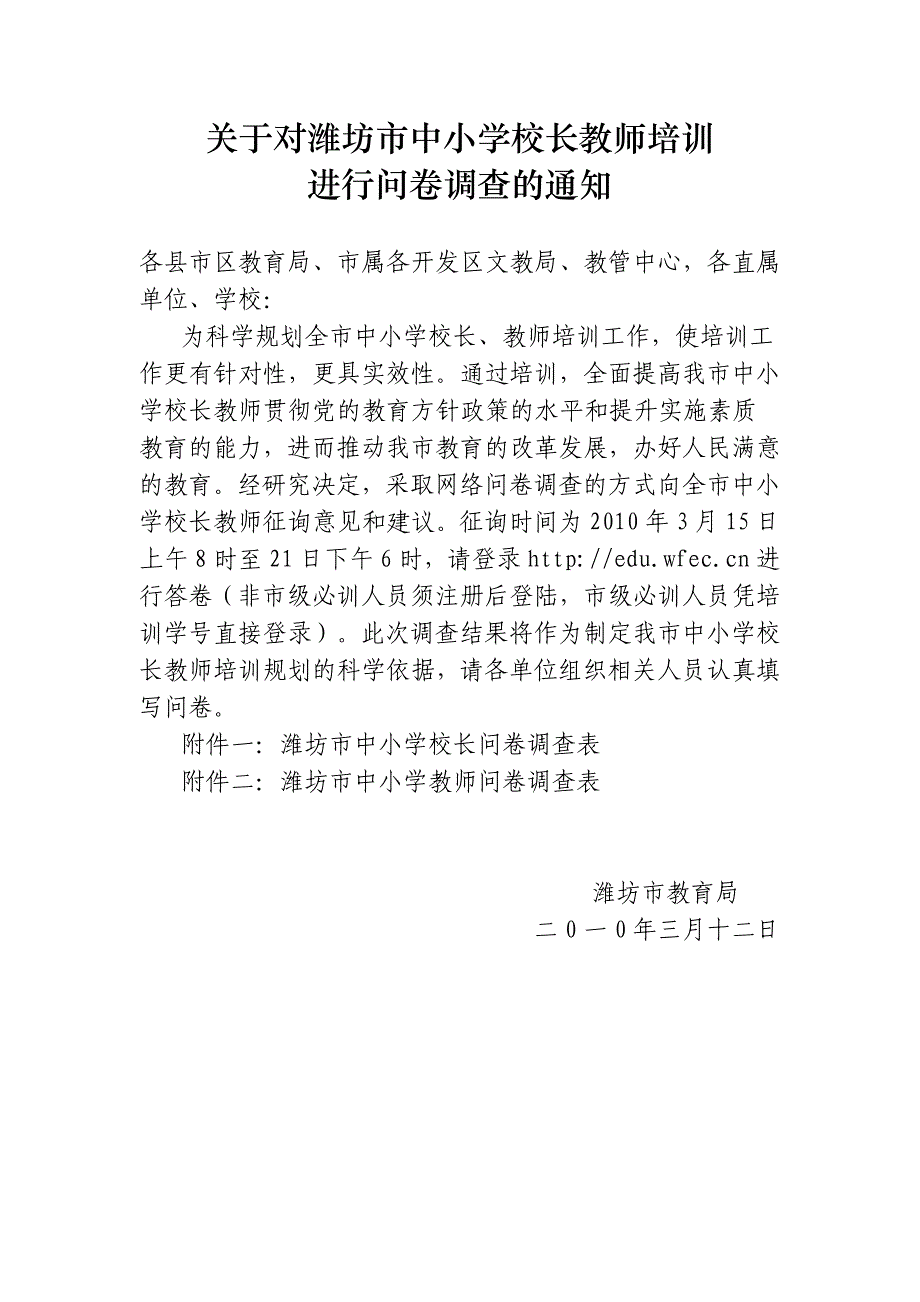 关于对潍坊市中小学校长教师培训
进行问卷调查的通知
各县市区教育局、市属各开发区文教局、教管中心，各直属
单位、学校：
为科学规划全市中小学校长、教师培训工作，使培训工
作更有针对性，更具实效性。通过培训，全面提高我市中小
学校长教师贯彻党的教育方针政策的水平和提升实施素质
教育的能力，进而推动我市教育的改革发展，办好人民满意
的教育。经研究决定，采取网络问卷调查的方式向全市中小
学校长教师征询意见和建议。征询时间为 2010 年 3 月 15 日
上午 8 时至 21 日下午 6 时，请登录 http://edu.wfec.cn 进
行答卷（非市级必训人员须注册后登陆，市级必训人员凭培
训学号直接登录）。此次调查结果将作为制定我市中小学校
长教师培训规划的科学依据，请各单位组织相关人员认真填
写问卷。
附件一：潍坊市中小学校长问卷调查表
附件二：潍坊市中小学教师问卷调查表
潍坊市教育局
二 0 一 0 年三月十二日